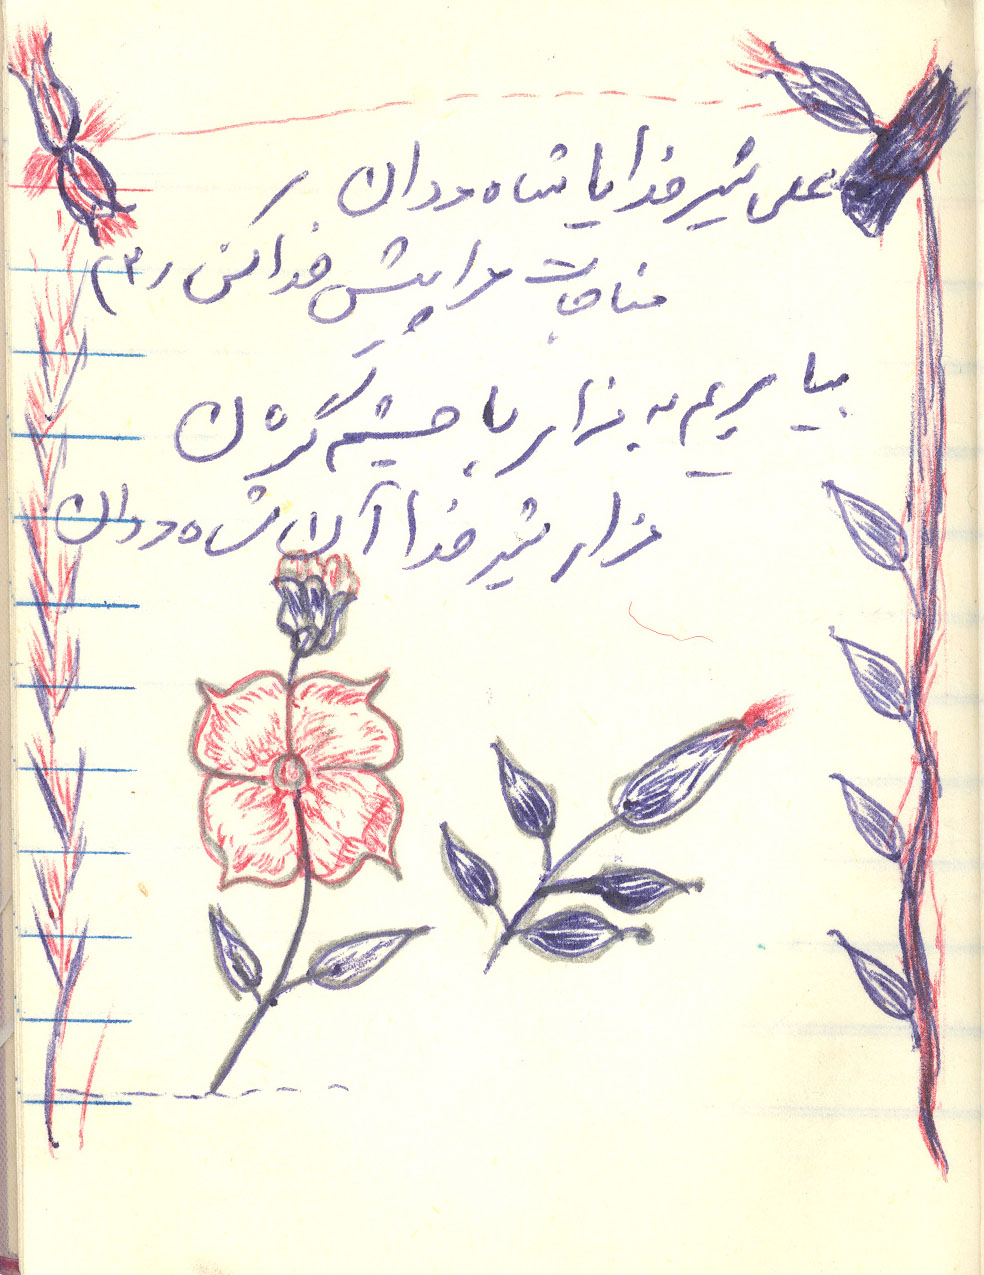 علی شیر خدا یا شاه مردان
مناجات مرا پیش خدا کن
بیا بریم به مزار با چشم گریان
مزار شیر خدا آن شاه مردان